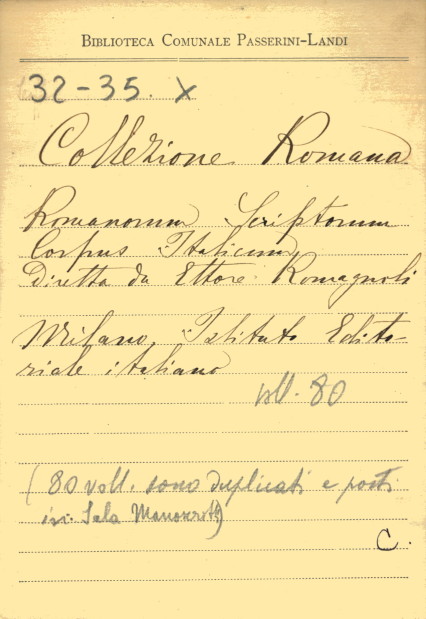 BIBLIOTECA COMUNALE PASSERINI-LANDI
32-35. X
Collezione Romana
Romanorum Scriptorum
Corpus Italicum
Diretta da Ettore Romagnoli
Milano, Istituto Edito-
riale italiano
voll. 80
(80 voll. sono duplicati e posti
in: Sala
C.